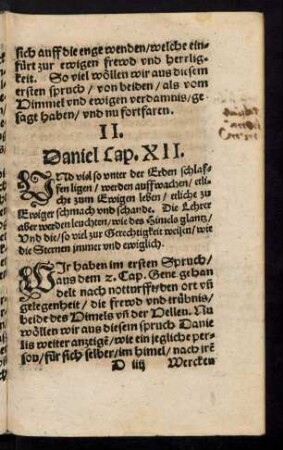 sich auff die enge wenden/welche ein-
fürt zur ewigen frewd vnd herrlig-
keit. So viel wöllen wir aus diesem
ersten spruch/von beiden/als vom
Himmel vnd ewigen verdamnis/ge
sagt haben/vnd nu fortfaren.
II.
Daniel Cap. XII.
VNd viel so vnter der Erden schlaf-
fen ligen/werden auffwachen/etli-
che zum Ewigen leben/etliche zu
Ewiger schmach vnd schande. Die Lehrer
aber werden leuchten/wie des Himels glantz/
Vnd die/so viel zur Gerechtigkeit weisen/wie
die Sternen jmmer vnd ewiglich.
WIr haben im ersten Spruch/
aus dem 2. Cap. Gene. gehan
delt nach notturfft/den ort vñ
gelegenheit/die frewd vnd trübnis/
beide des Himels vñ der Hellen. Nu
wöllen wir aus diesem spruch Danie
lis weiter anzeigẽ/wie ein jegliche per-
son/für sich selber/im himel/nach jrẽ
D iiij Wercken